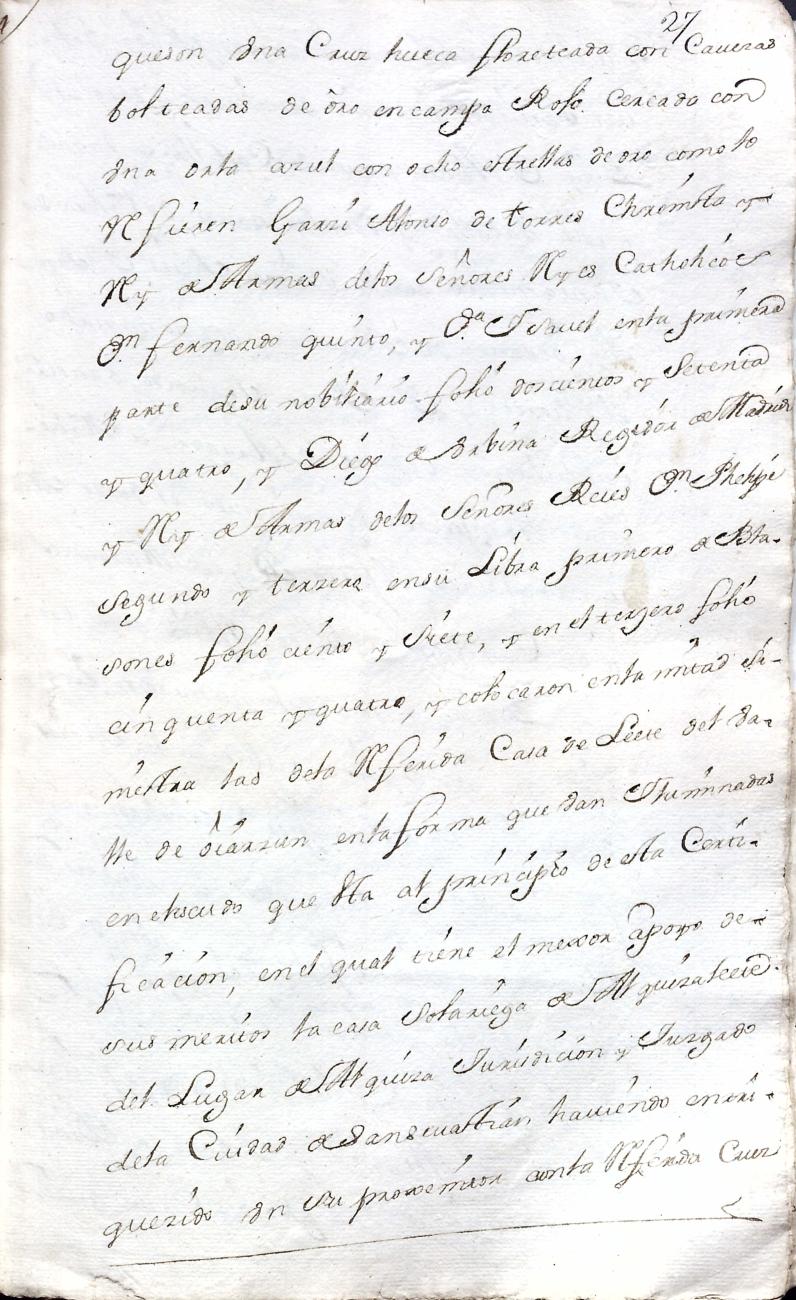 27
queson Una Cruz hueca floreteada con Caveras
bolteadas de oro encampo Roxo Cercado con
Una orla azul con ocho estrellas de oro como lo
Refieren Garzi Alonso de torres Chronista y
Rey de Armas delos Señores Reyes Catholicos
Dn fernando quinto, y Da Isavel enla primera
parte desu nobiliario folio doscientos y Setenta
y quatro, y Diego de Urbina Regidor de Madrid
y Rey de Armas delos Señores Reies Dn Phelipe
Segundo y terzero ensu Libro primero de Bla-
sones folio ciento y Siete, y en el terzero folio
cinquenta y quatro, y colocaron enla mitad Si-
niestra las dela Referida Casa de Leete del Va-
lle de oiarzun enla forma que Van Iluminadas
enelescudo que Va al principio de esta Certi-
ficacion, en el qual tiene el mexor apoyo de
sus meritos la casa Solariega de Alquizaleete
del Lugar de Alquiza Jurisdicion y Juzgado
dela Ciudad de Sansevastian haviendo enrri-
quezido Un Su proxenitor conla Referida Cruz